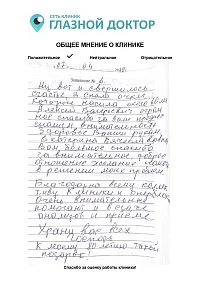 СЕТЬ КЛИНИК
ГЛАЗНОЙ ДОКТОР
ОБЩЕЕ МНЕНИЕ О КЛИНИКЕ
Положительное ✓ Нейтральное Отрицательное
04
Ну вот и свершилось
счастье, я сняла очки
которое носила около
Алексей Валерьевич огром
ное спасибо за ваш
внимательно
здоровье Вашим рукам,
Екатерина
Вам, большое спасибо
за внимательное, доброе
отношение, желание
в решении моих проблем
Благодарна всему коллек
тиву Клиники и
Очень внимательно
помогают в сдаче
анализов и приёме
Храни вас всех
Господь
К моему 80 летию такой
подарок!
Спасибо за оценку работы клиники!